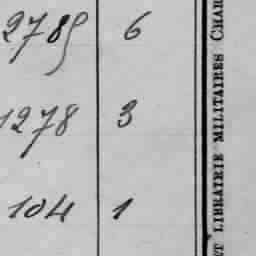 2785 6
1278 3
104 1
ET LIBRAIRIE MILITAIRES CHAR